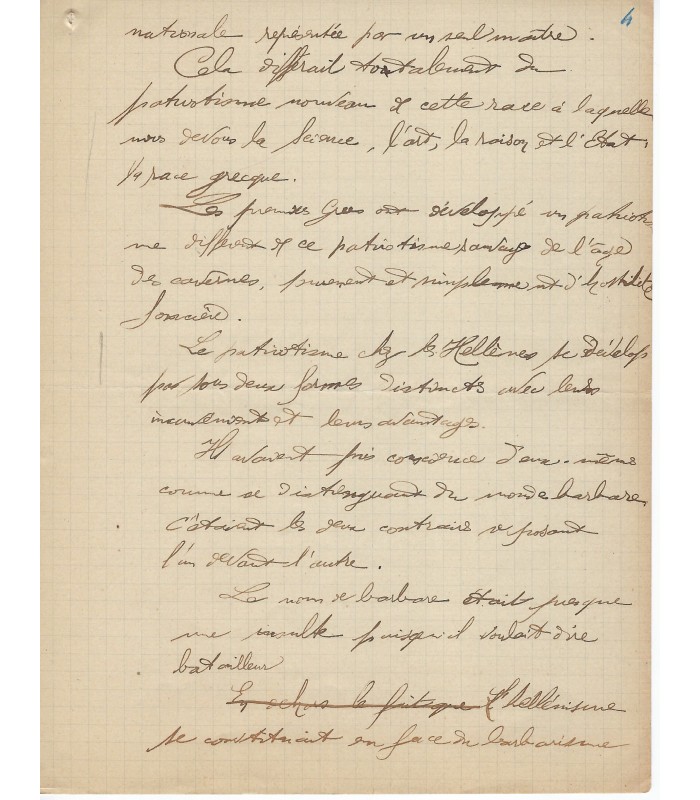 4
nationale représentée par un seul maître.
Cela différait totalement du
patriotisme nouveau de cette race à laquelle
nous devons la Science, l'art, la raison et l'Etat,
la race grecque.
Les premiers Grecs ont développé un patriotis
me différent de ce patriotisme sauvage de l'âge
des cavernes, purement et simplement d'hostilité
foncière.
Le patriotisme chez les Hellènes se dévelop
pa sous deux formes distinctes avec leurs
inconvénients et leurs avantages.
Ils avaient pris conscience d'eux-même
comme se distinguant du monde barbare,
c'étaient les deux contraires se posant
l'un devant l'autre.
Le nom de barbare était presque
une insulte puisqu'il voulait dire
batailleur
En dehors le fait que l'hellénisme
se constituant en face du barbarisme